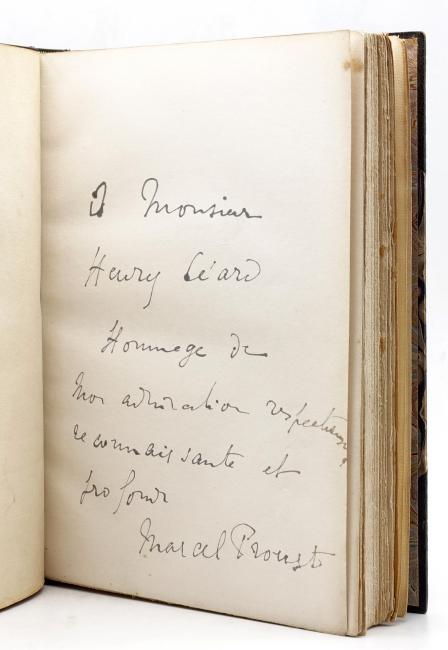 A Monsieur
Henry Céard
Hommage de
mon admiration respectueuse,
reconnaissante et
profonde
Marcel Proust